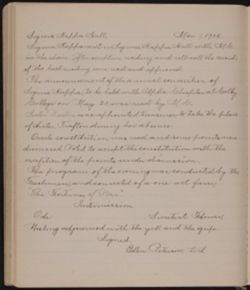 Sigma Kappa Hall. Nov. 7, 1908
Sigma Kappa met in Sigma Kappa Hall with
in the chair. After scripture reading and roll call the records
of the last meeting were read and approved.
The announcement of the annual convention of
Sigma Kappa to be held with Alpha Chapter at Colby
College on May 22 was read by
was appointed treasurer to take the place
of sister Trafton during her absence.
Our constitution was read and some points were
discussed. Voted to accept the constitution with the
exception of the points under discussion.
The program of the evening was conducted by the
Freshmen and consisted of a one act farce,
"The of
Intermission
Ode Sweetest Flower
Meeting adjourned with the yell and the grip.
Signed,
Ellen Peterson